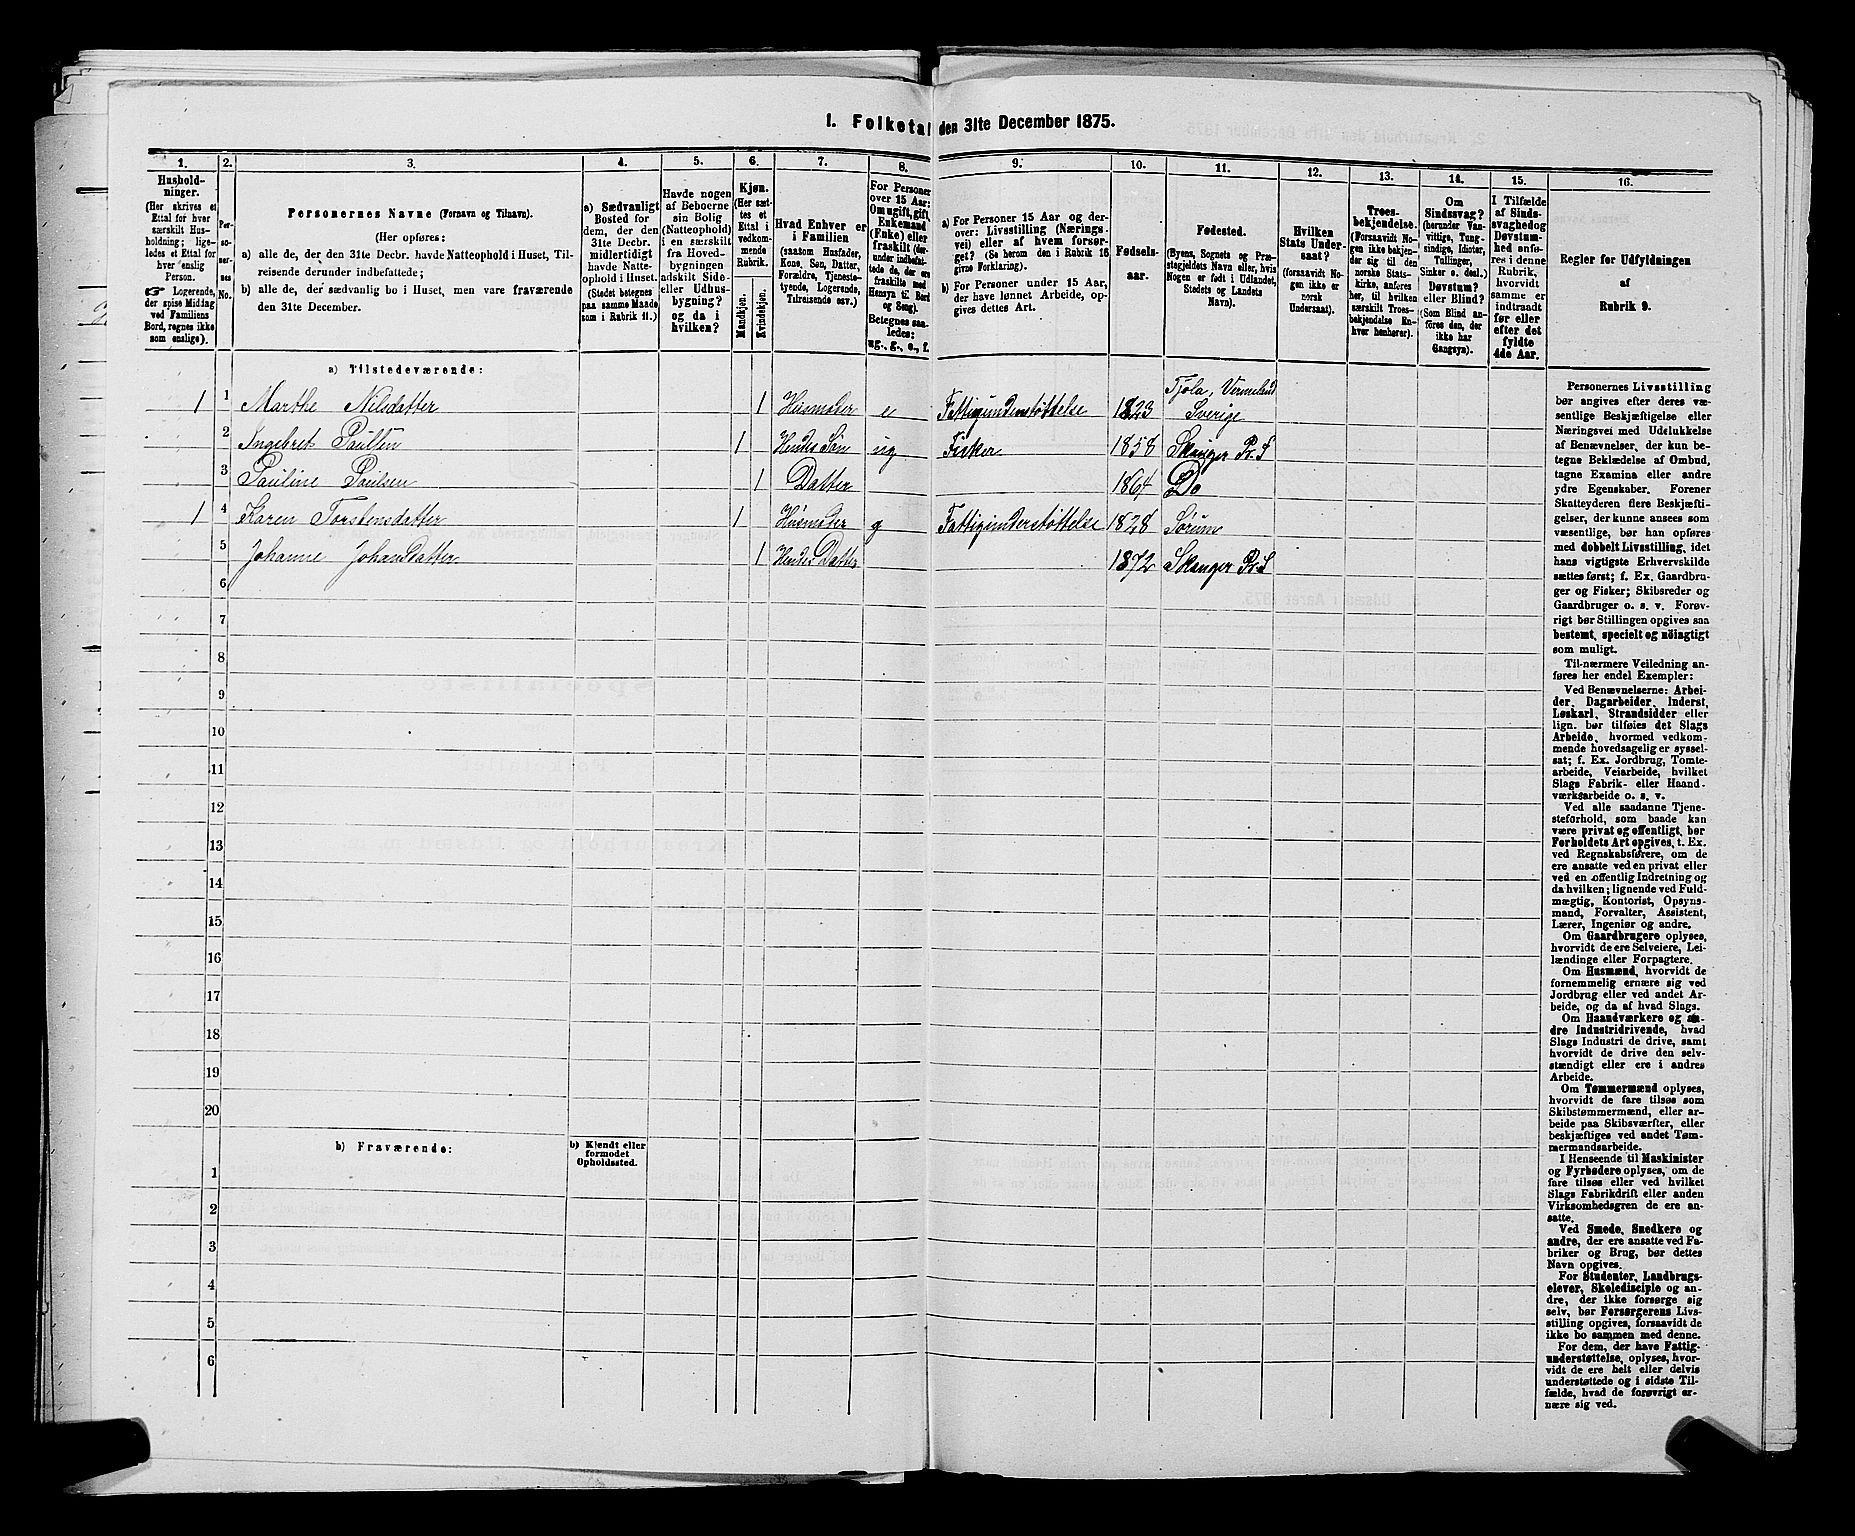 1. Folketal den 31te December 1875.
1. 2. 3. 4. 5. 6. 7. 8. 9. 10. 11. 12. 13. 14. 15. 16.
Hushold-
ninger.
(Her skrives et
Ettal for hver
særskilt Hus-
holdning; lige-
ledes et Ettal for
hver enslig
Person.
☞ Logerende,
der spise Middag
ved Familiens
Bord, regnes ikke
som enslige).
Per-
so-
ner-
nes
No.
Personernes Navne (Fornavn og Tilnavn).
(Her opføres:
a) alle de, der den 31te Decbr. havde Natteophold i Huset, Til-
reisende derunder indbefattede;
b) alle de, der sædvanlig bo i Huset, men vare fraværende
den 31te December.
a) Sædvanligt
Bosted for
dem, der den
31te Decbr.
midlertidigt
havde Natte-
ophold i Huset.
(Stedet betegnes
paa samme Maade
som i Rubrik 11.)
Havde nogen
af Beboerne
sin Bolig
(Natteophold)
i en særskilt
fra Hoved-
bygningen
adskilt Side-
eller Udhus-
bygning?
og da i
hvilken?
Kjøn.
(Her sæt-
tes et
Ettal i
vedkom-
mende
Rubrik.
Mandkjøn.
Kvindekjøn.
Hvad Enhver er
i Familien
(saasom Husfader,
Kone, Søn, Datter,
Forældre, Tjeneste-
tyende, Logerende,
Tilreisende osv.)
For Personer
over 15 Aar:
Om ugift, gift,
Enkemand
(Enke) eller
fraskilt (der-
under indbefat-
tede de, der ere
fraskilte med
Hensyn til Bord
og Seng).
Betegnes saa-
ledes:
ug., g., e., f.
a) For Personer 15 Aar og der-
over: Livsstilling (Nærings-
vei) eller af hvem forsør-
get? (Se herom den i Rubrik 16
givne Forklaring).
b) For Personer under 15 Aar,
der have lønnet Arbeide, op-
gives dettes Art.
Fødsels-
aar.
Fødested.
(Byens, Sognets og Præ-
stegjeldets Navn eller, hvis
Nogen er født i Udlandet,
Stedets og Landets
Navn).
Hvilken
Stats Under-
saat?
(forsaavidt No-
gen ikke er
norsk
Undersaat).
Troes-
bekjendelse.
(Forsaavidt No-
gen ikke bekjen-
der sig til den
norske Stats-
kirke, anføres
her, til hvilken
særskilt Troes-
bekjendelse En-
hver henhører).
Om
Sindssvag?
(herunder Van-
vittige, Tung-
sindige, Idioter,
Tullinger,
Sinker o. desl.)
Døvstum?
eller Blind?
(Som Blind an-
føres den, der
ikke har
Gangsyn).
I Tilfælde
af Sinds-
svaghed og
Døvstum-
hed anfø-
res i denne
Rubrik,
hvorvidt
samme er
indtraadt
før eller
efter det
fyldte
4de Aar.
Regler for Udfyldningen
af
Rubrik 9.
a) Tilstedeværende:
Tjøla, Vermeland
1 1 Marthe Nilsdatter 1 Husmoder e Fattigunderstøttelse 1823 Sverige
2 Ingebret Paulsen 1 Hendes Søn ug Fisker 1858 Skånger Pr. S
3 Pauline Paulsen 1 Datter 1864 Do
1 4 Karen Torstensdatter 1 Husmoder g Fattigunderstøttelse 1828 Sørum
5 Johanne Johansdatter 1 Hendes Datter 1872 Skånger Pr. S
6
7
8
9
10
11
12
13
14
15
16
17
18
19
20
b) Fraværende:
b) Kjendt eller
formodet
Opholdssted.
1
2
3
4
5
6
Personernes Livsstilling
bør angives efter deres væ-
sentlige Beskjæftigelse eller
Næringsvei med Udelukkelse
af Benævnelser, der kun be-
tegne Beklædelse af Ombud,
tagne Examina eller andre
ydre Egenskaber. Forener
Skatteyderen flere Beskjæfti-
gelser, der kunne ansees som
væsentlige, bør han opføres
med dobbelt Livsstilling, idet
hans vigtigste Erhvervskilde
sættes først; f. Ex. Gaardbru-
ger og Fisker; Skibsreder og
Gaardbruger o. s. v. Forøv-
rigt bør Stillingen opgives saa
bestemt, specielt og nöiagtigt
som muligt.
Til nærmere Veiledning an-
føres her endel Exempler:
Ved Benævnelserne: Arbei-
der, Dagarbeider, Inderst,
Løskarl, Strandsidder eller
lign. bør tilføies det Slags
Arbeide, hvormed vedkom-
mende hovedsagelig er syssel-
sat; f. Ex. Jordbrug, Tomte-
arbeide, Veiarbeide, hvilket
Slags Fabrik- eller Haand-
værksarbeide o. s. v.
Ved alle saadanne Tjene-
steforhold, som baade kan
være privat og offentligt, bør
Forholdets Art opgives, t. Ex.
ved Regnskabsførere, om de
ere ansatte ved en privat eller
ved en offentlig Indretning og
da hvilken; lignende ved Fuld-
mægtig, Kontorist, Opsyns-
mand, Forvalter, Assistent,
Lærer, Ingeniør og andre.
Om Gaardbrugere oplyses,
hvorvidt de ere Selveiere, Lei-
lændinge eller Forpagtere.
Om Husmænd, hvorvidt de
fornemmelig ernære sig ved
Jordbrug eller ved andet Ar-
beide, og da af hvad Slags.
Om Haandværkere og an-
dre Industridrivende, hvad
Slags Industri de drive, samt
hvorvidt de drive den selv-
stændigt eller ere i andres
Arbeide.
Om Tømmermænd oplyses,
hvorvidt de fare tilsøs som
Skibstømmermænd, eller ar-
beide paa Skibsværfter, eller
beskjæftiges ved andet Tøm-
mermandsarbeide.
I Henseende til Maskinister
og Fyrbødere oplyses, om de
fare tilsøs eller ved hvilket
Slags Fabrikdrift eller anden
Virksomhedsgren de ere an-
satte.
Ved Smede, Snedkere og
andre, der ere ansatte ved Fa-
briker og Brug, bør dettes
Navn opgives.
For Studenter, Landbrugs-
elever, Skoledisciple og an-
dre, der ikke forsørge sig
selv, bør Forsørgerens Livs-
stilling opgives, forsaavidt de
ikke bo sammen med denne.
For dem, der have Fattig-
understøttelse, oplyses, hvor-
vidt de ere helt eller delvis
understøttede og i sidste Til-
fælde, hvad de forøvrigt er-
nære sig ved.